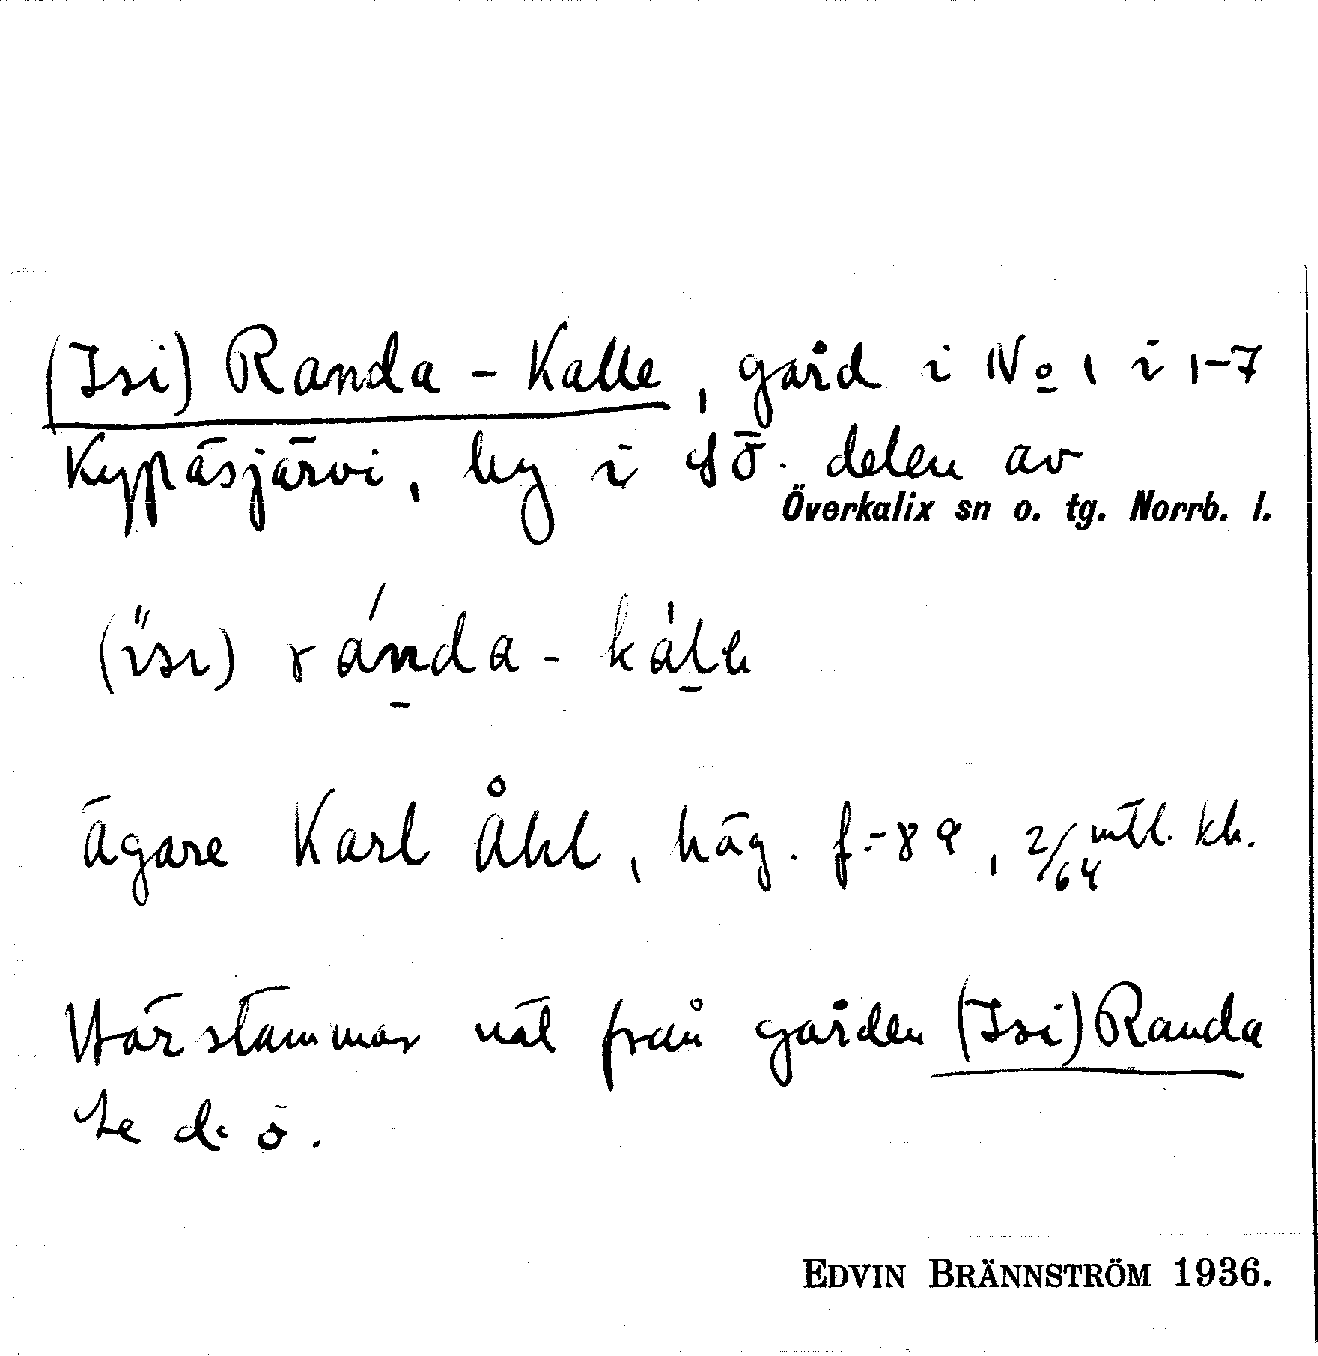 (Isi) Randa - Kalle, gård i No 1 i 1-7
Kypäsjärvi, by i sö. delen av
Överkalix sn o. tg. Norrb. l.
(ïsı) ránda - kálle
ägare Karl Åhl, häg. f.-89, 2/64 mtl. kh.
Härstammar näl från gården (Isi) Randa
se d. o.
EDVIN BRÄNNSTRÖM 1936.